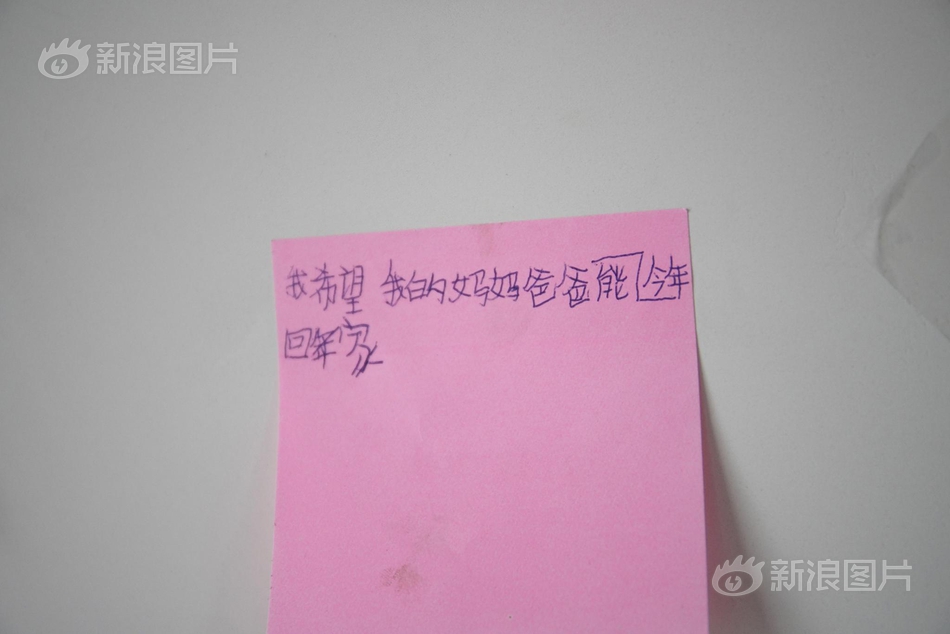 新浪图片
我希望 我的妈妈爸爸能今年
回家
新浪图片